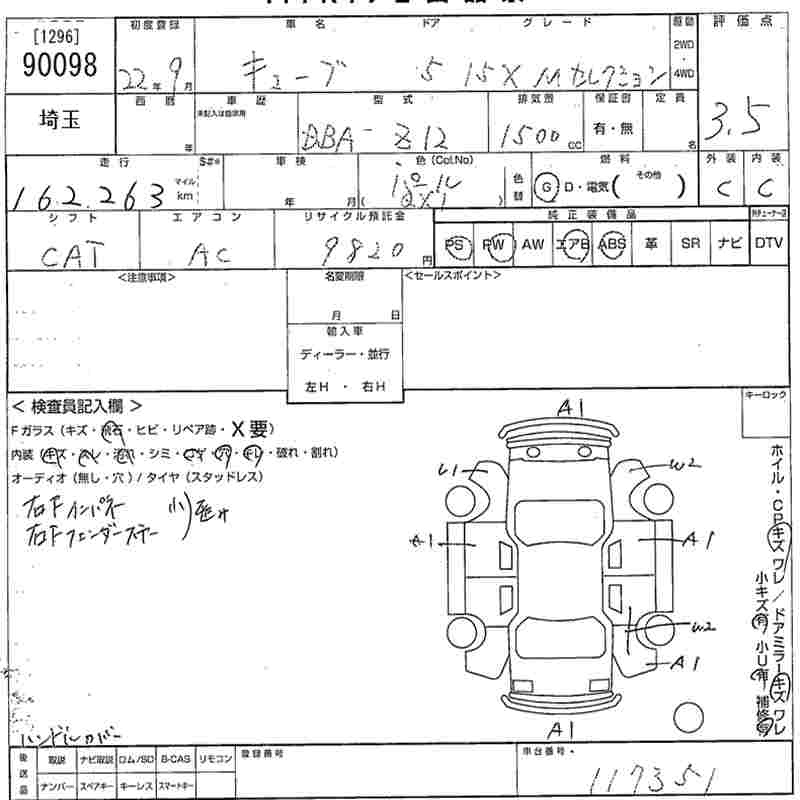 [1296]
90098
埼玉
初度登録 車名 ドア グレード 駆動 評価点
22年 9月 キューブ 5 15X Mセレクション 2WD 4WD 3.5
西暦 車歴 型式 排気量 保証書 定員
年 未記入は自家用 DBA-Z12 1500cc 有・無 名
走行 S#* 車検 色(Col.No) 色替 燃料 外装 内装
162,263 マイル km 年 月 ( ) G D・電気( その他 ) C C
シフト エアコン リサイクル預託金 純正装備品
CAT AC 9820円 PS PW AW エアB ABS 革 SR ナビ DTV
<注意事項> 名変期限 <セールスポイント>
月 日
輸入車
ディーラー・並行
左H・右H
キーロック
<検査員記入欄>
Fガラス(キズ・飛石・ヒビ・リペア跡・X要)
内装(キズ・スレ・汚れ・シミ・コゲ・穴・キレ・破れ・割れ)
オーディオ(無し・穴)/タイヤ(スタッドレス)
右Fインパネ 小)
右Fフェンダーステー
A1
U1 W2
A1 A1
W2
A1
A1
ホイル・CPキズワレ/ドアミラーキズワレ
小キズ有 小U有 補修有
ハンドルカバー
後送品 取説 ナビ取説 ロム/SD B-CAS リモコン 登録番号 車台番号
ナンバー スペアキー キーレス スマートキー 117351